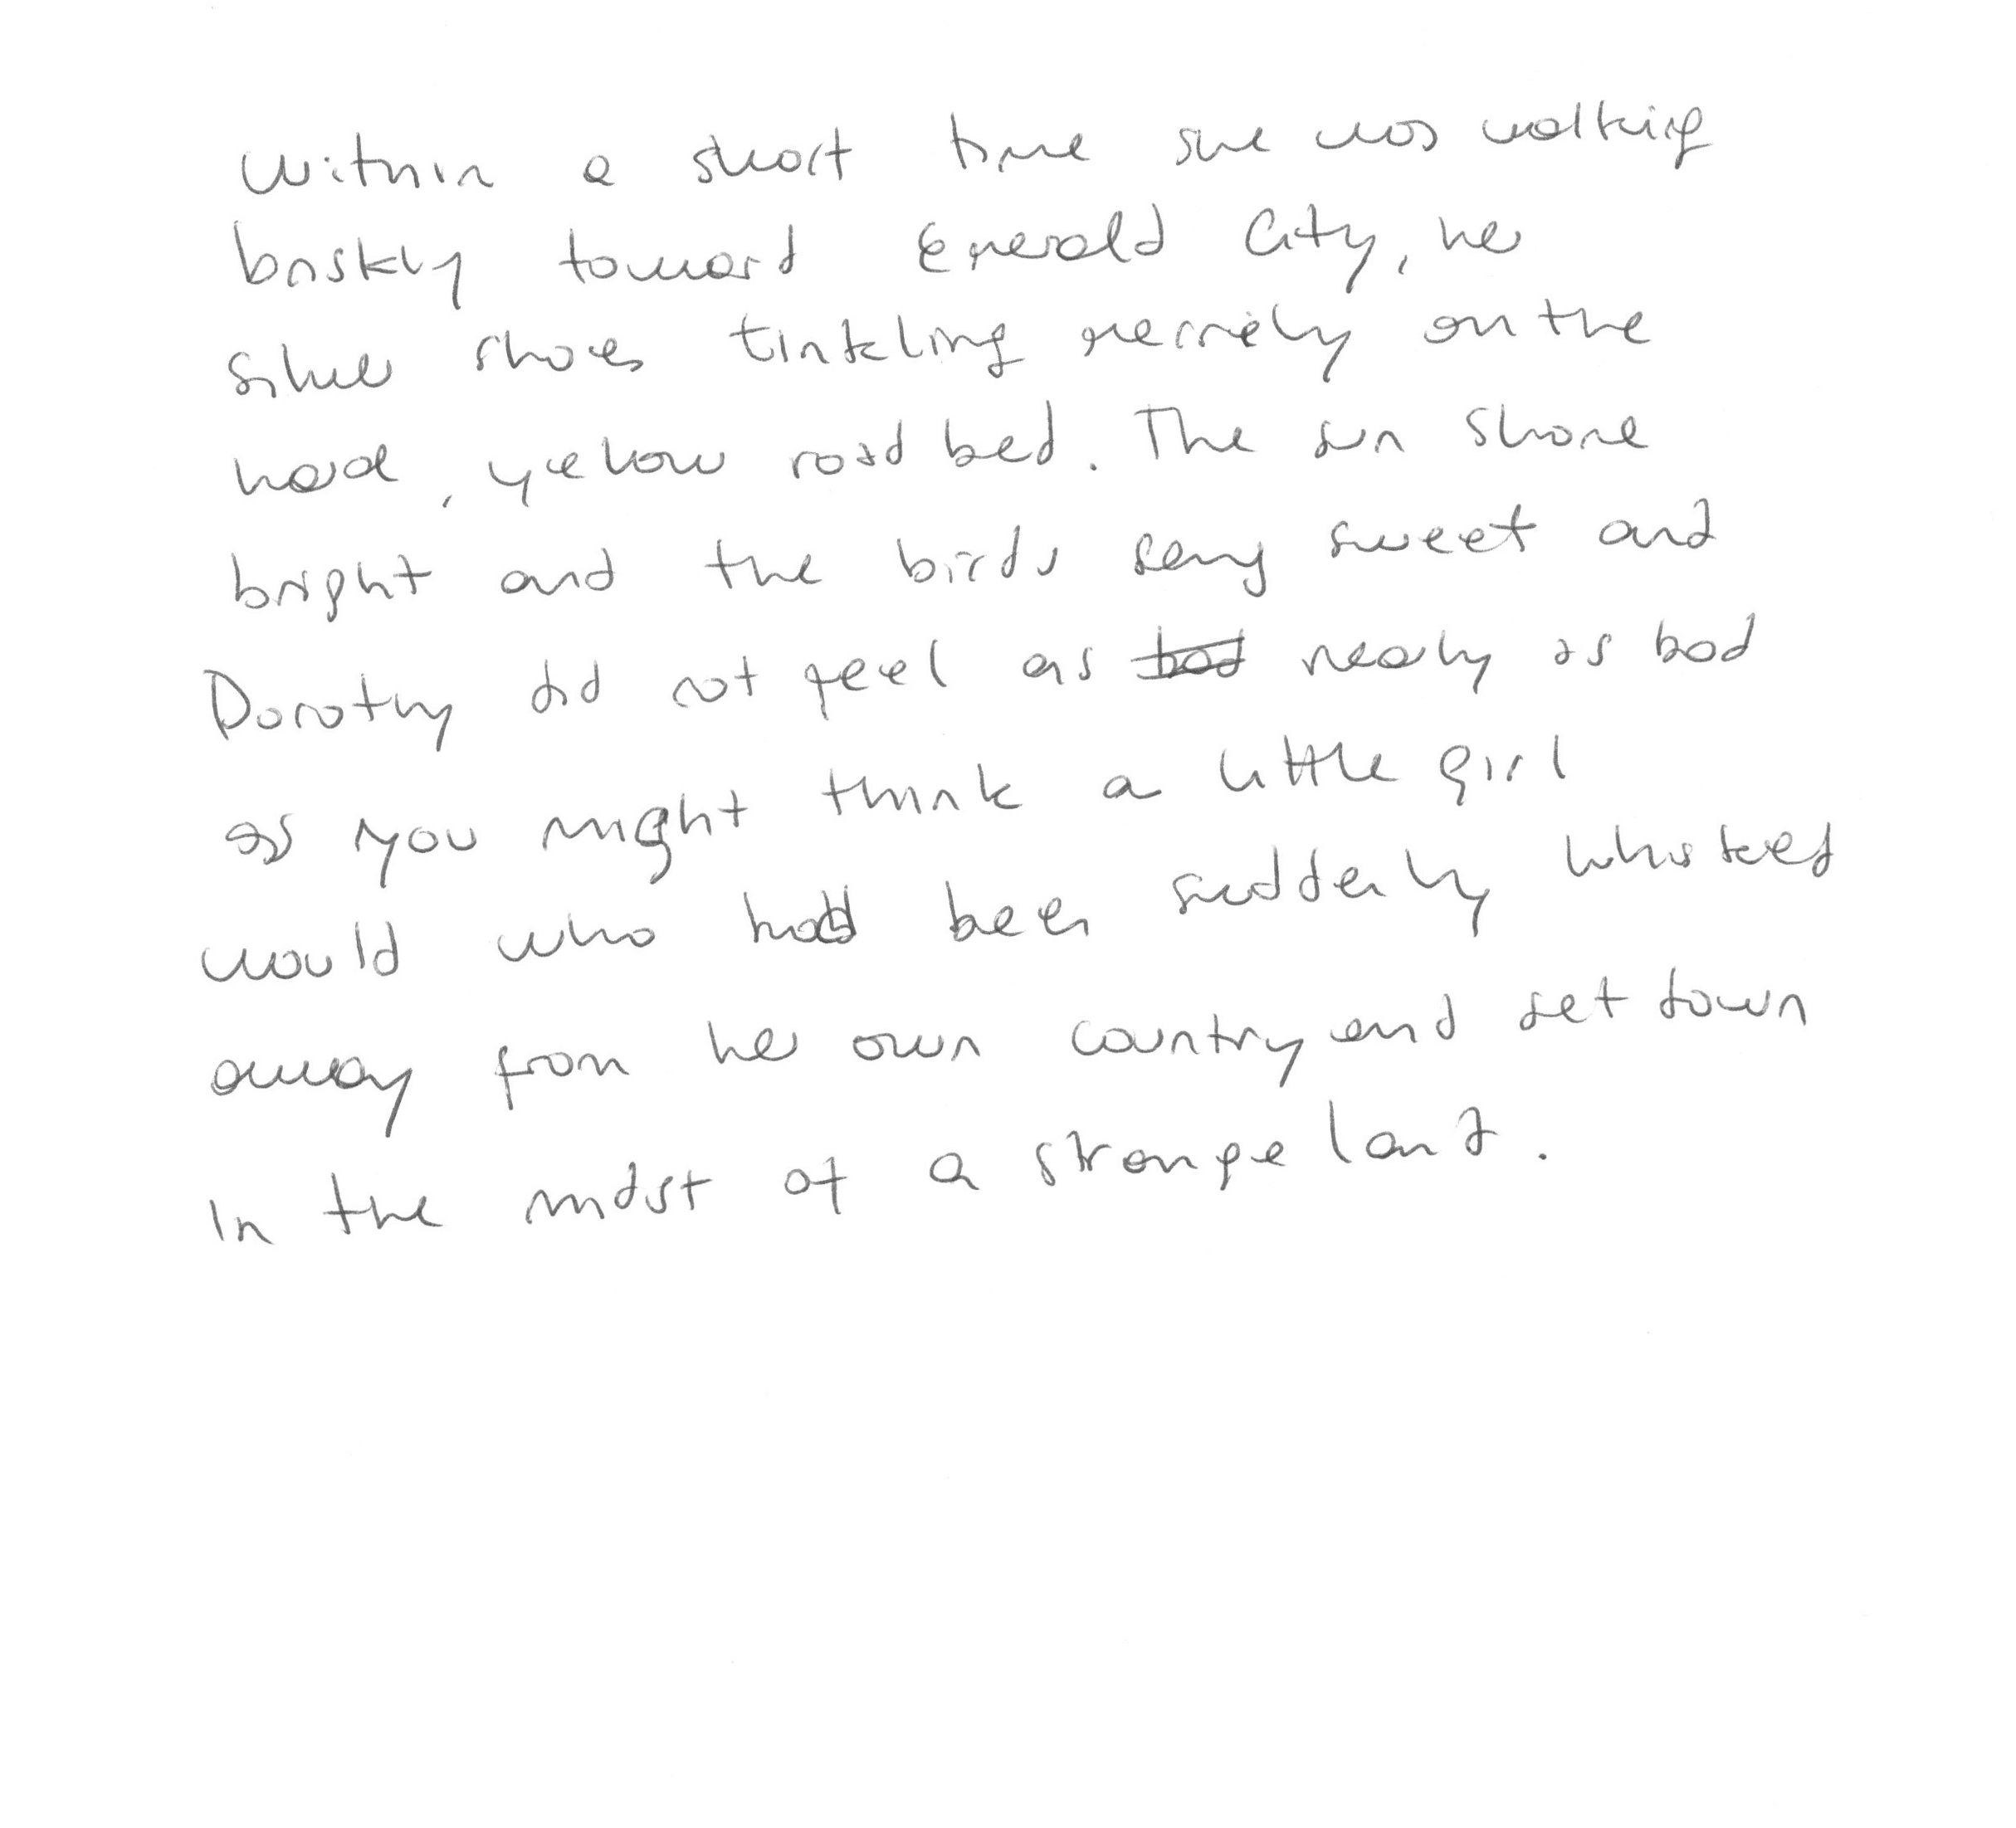 Within a short time she was walking
briskly toward Emerald City, her
silver shoes tinkling merrily on the
hard, yellow road bed. The sun shone
bright and the birds sang sweet and
Dorothy did not feel as bad nearly as bad
as you might think a little girl
would who had been suddenly whisked
away from her own country and set down
in the midst of a strange land.